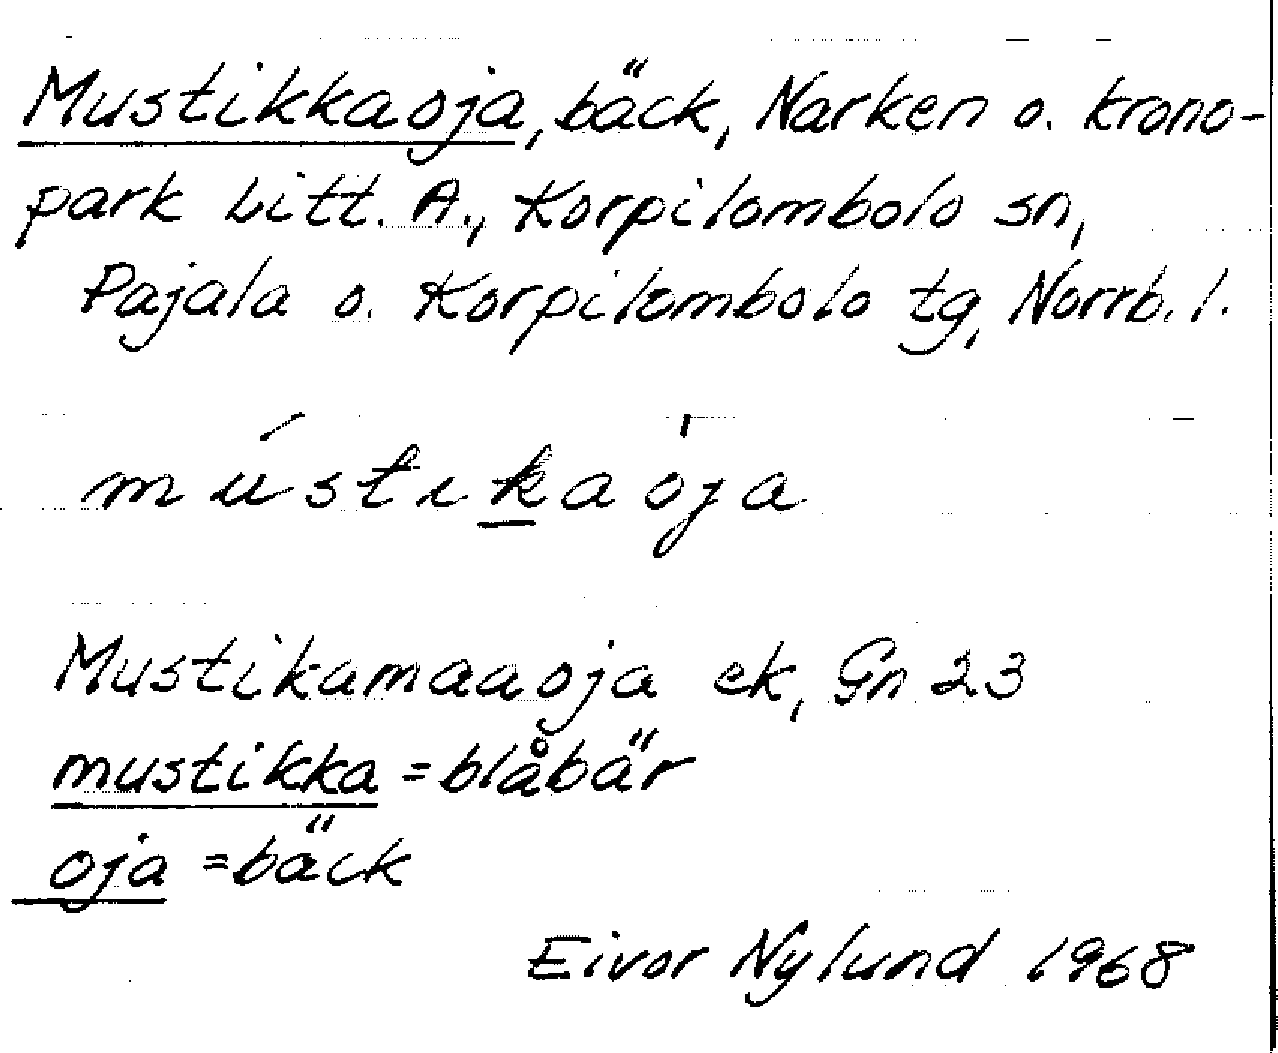 Mustikkaoja, bäck, Narken o. krono-
park Litt. A., Korpilombolo sn,
Pajala o. Korpilombolo tg, Norrb. l.
mústikaòja
Mustikamaaoja ek, Gn 23
mustikka = blåbär
oja = bäck
Eivor Nylund 1968